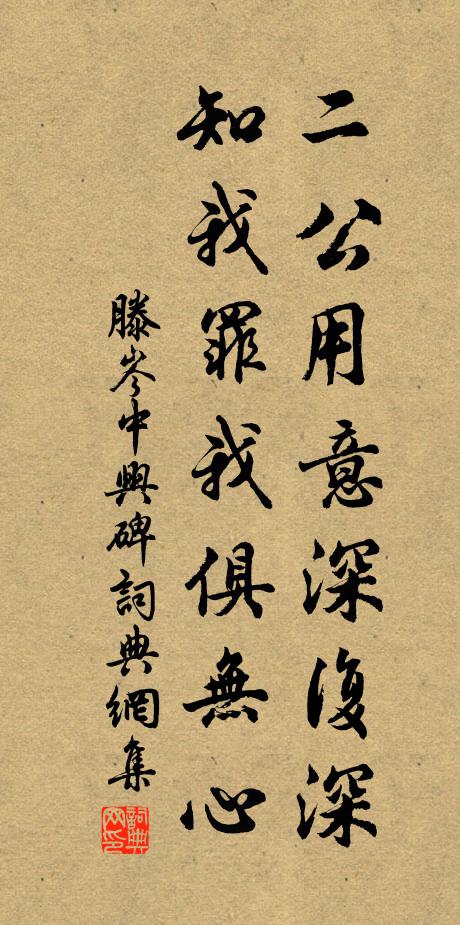 二公用意深復深
知我罪我俱無心
滕岑中興碑詞典網集
詞典网印